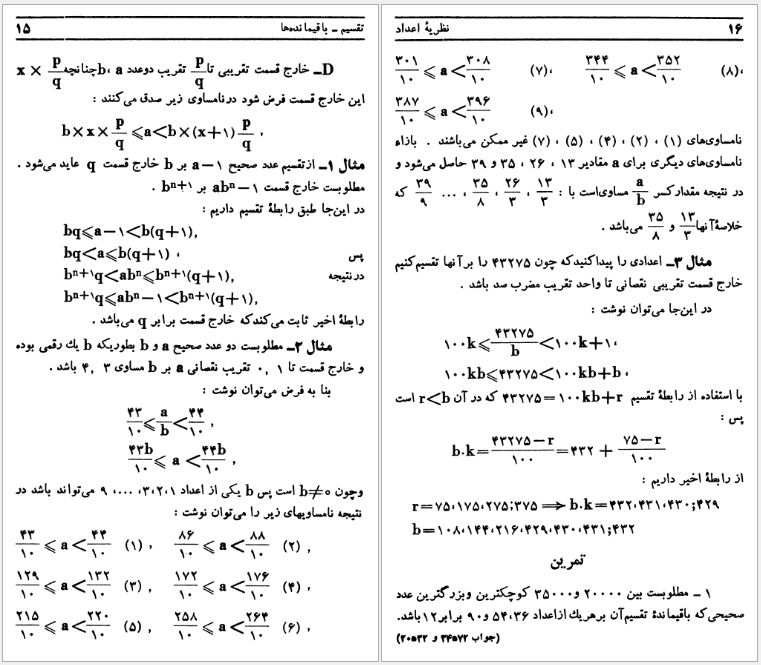 تقسیم ــ باقیمانده‌ها ۱۵
D‌ــ خارج قسمت تقریبی تا p/q تقریب دوعدد b، a چنانچه x × p/q
این خارج قسمت فرض شود در نامساوی زیر صدق می‌کنند :
b×x× p/q ⩽a<b×(x+۱) p/q ,
مثال ۱ــ ازتقسیم عدد صحیح a−۱ بر b خارج قسمت q عاید می‌شود .
مطلوبست خارج قسمت abⁿ−۱ بر bⁿ⁺¹ .
در این‌جا طبق رابطهٔ تقسیم داریم :
bq⩽a−۱<b(q+۱),
پس bq<a⩽b(q+۱) ،
در نتیجه bⁿ⁺¹q<abⁿ⩽bⁿ⁺¹(q+۱),
bⁿ⁺¹q⩽abⁿ−۱<bⁿ⁺¹(q+۱),
رابطهٔ اخیر ثابت می‌کند که خارج قسمت برابر q می‌باشد .
مثال ۲ــ مطلوبست دو عدد صحیح a و b بطوریکه b یك رقمی بوده
و خارج قسمت تا ۱ ,۰ تقریب نقصانی a بر b مساوی ۳ ,۴ باشد .
بنا به فرض می‌توان نوشت :
۴۳/۱۰ ⩽ a/b < ۴۴/۱۰ ,
۴۳b/۱۰ ⩽ a < ۴۴b/۱۰ ,
وچون b≠۰ است پس b یکی از اعداد ۳،۲،۱، ...، ۹ می‌تواند باشد در
نتیجه نامساویهای زیر را می‌توان نوشت :
۴۳/۱۰ ⩽ a < ۴۴/۱۰ (۱) , ۸۶/۱۰ ⩽ a < ۸۸/۱۰ (۲) ,
۱۲۹/۱۰ ⩽ a < ۱۳۲/۱۰ (۳) , ۱۷۲/۱۰ ⩽ a < ۱۷۶/۱۰ (۴) ,
۲۱۵/۱۰ ⩽ a < ۲۲۰/۱۰ (۵) , ۲۵۸/۱۰ ⩽ a < ۲۶۴/۱۰ (۶) ,
نظریهٔ اعداد ۱۶
۳۰۱/۱۰ ⩽ a < ۳۰۸/۱۰ (۷)، ۳۴۴/۱۰ ⩽ a < ۳۵۲/۱۰ (۸)،
۳۸۷/۱۰ ⩽ a < ۳۹۶/۱۰ (۹)،
نامساوی‌های (۱) ، (۲) ، (۴) ، (۵) ، (۷) غیر ممکن می‌باشند . بازاء
نامساوی‌های دیگری برای a مقادیر ۱۳ ، ۲۶ ، ۳۵ و ۳۹ حاصل می‌شود و
در نتیجه مقدار کسر a/b مساوی‌است با : ۱۳/۳ ، ۲۶/۳ ، ۳۵/۸ ، ... ۳۹/۹ که
خلاصهٔ آنها ۱۳/۳ و ۳۵/۸ می‌باشد .
مثال ۳ــ اعدادی را پیداکنیدکه چون ۴۳۲۷۵ را برآنها تقسیم‌کنیم
خارج قسمت تقریبی نقصانی تا واحد تقریب مضرب صد باشد .
در این‌جا می‌توان نوشت :
۱۰۰k⩽ ۴۳۲۷۵/b <۱۰۰k+۱،
۱۰۰kb⩽۴۳۲۷۵<۱۰۰kb+b ،
با استفاده از رابطهٔ تقسیم ۴۳۲۷۵=۱۰۰kb+r که در آن r<b است
پس :
b.k= ۴۳۲۷۵−r/۱۰۰ =۴۳۲ + ۷۵−r/۱۰۰
از رابطهٔ اخیر داریم :
r=۷۵،۱۷۵،۲۷۵;۳۷۵ ⟹ b.k=۴۳۲،۴۳۱،۴۳۰;۴۲۹
b=۱۰۸،۱۴۴،۲۱۶،۴۲۹،۴۳۰،۴۳۱;۴۳۲
تمرین
۱ ــ مطلوبست بین ۲۰۰۰۰ و ۳۵۰۰۰ کوچکترین و بزرگترین عدد
صحیحی‌که باقیماندهٔ تقسیم‌آن برهریك ازاعداد ۵۴،۳۶ و ۹۰ برابر ۱۲ باشد.
(جواب ۳۴۵۷۲ و ۲۰۵۳۲)